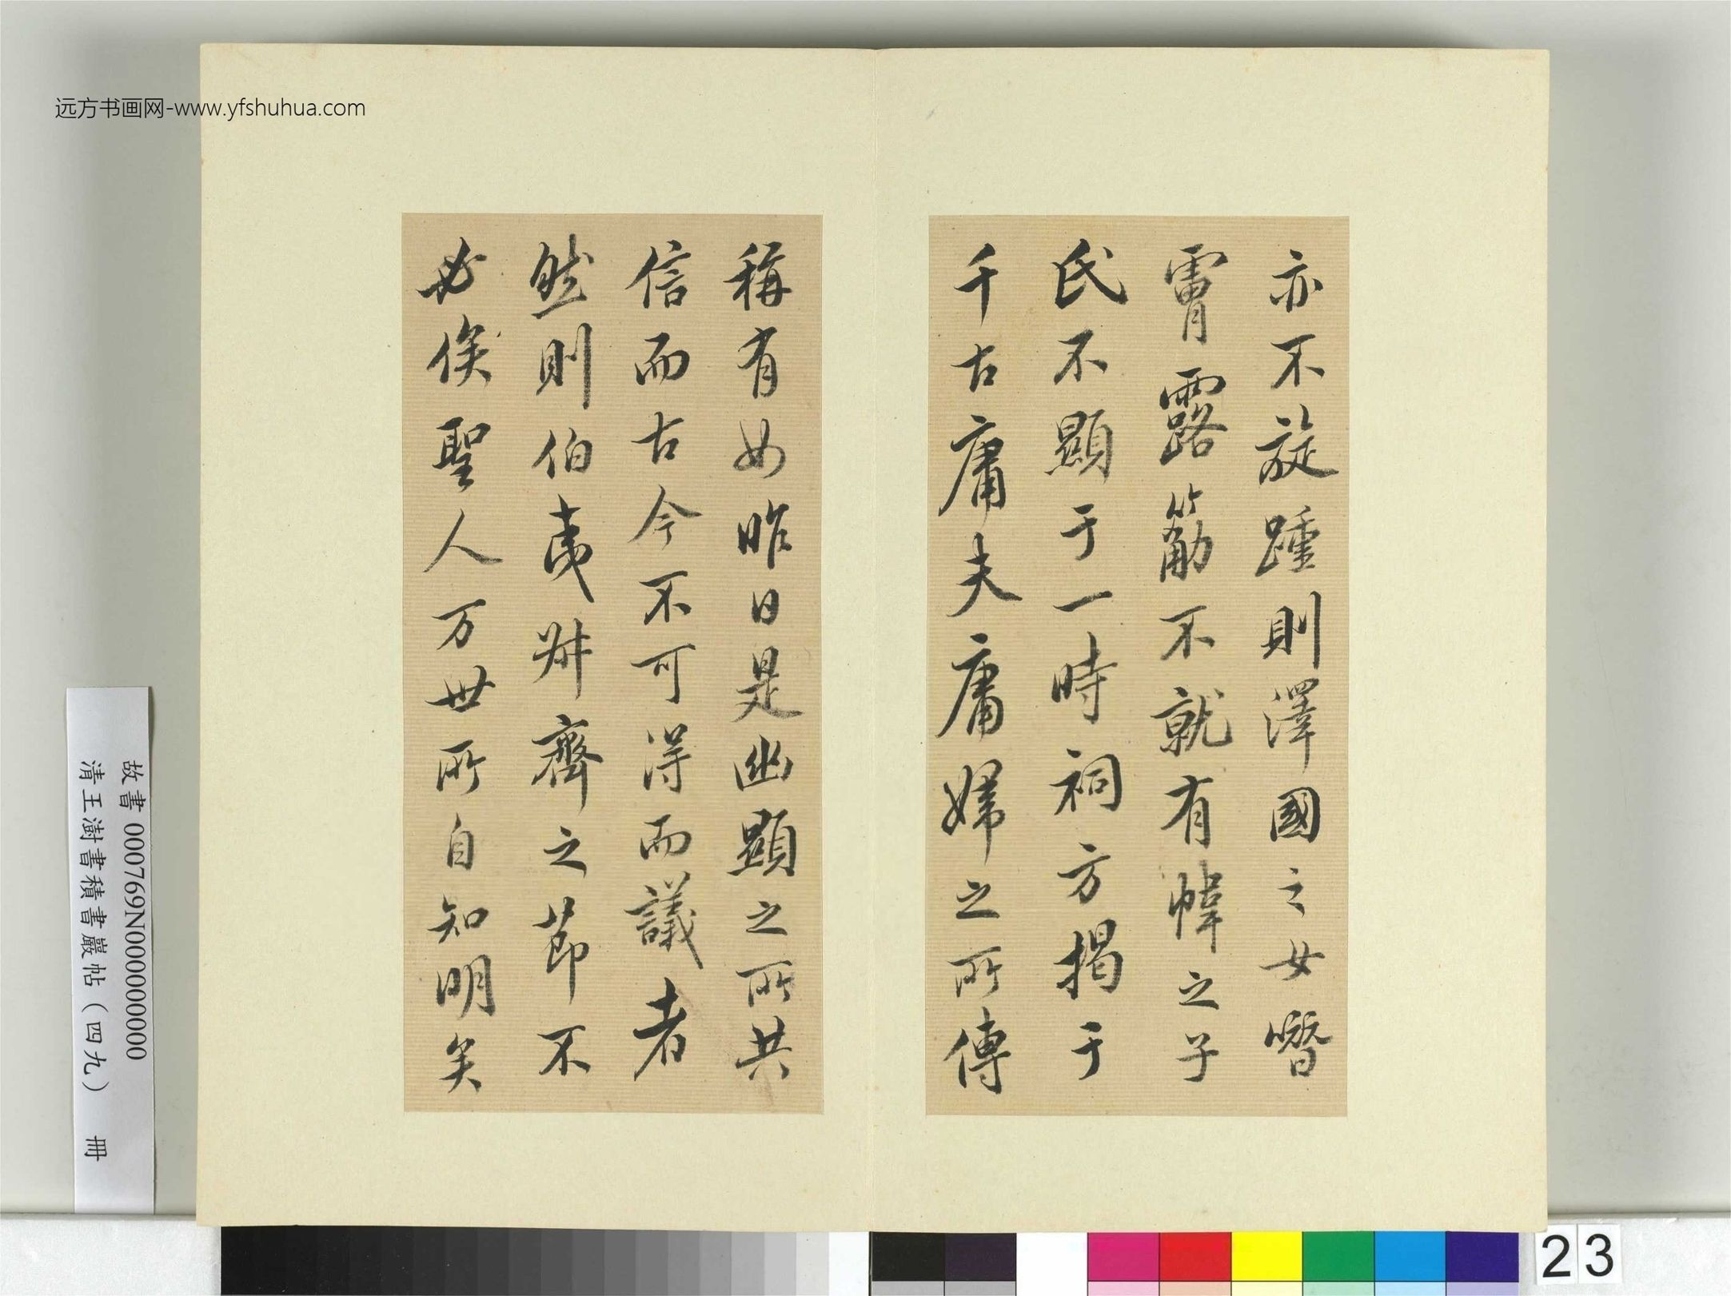 远方书画网-www.yfshuhua.com
亦不旋踵則澤國之女噆
膚露筋不就有幃之子
氏不顯于一時祠方揭于
千古庸夫庸婦之所傳
稱有如昨日是幽顯之所共
信而古今不可得而議者
然則伯夷叔齊之節不
必俟聖人万世所自知明矣
故書 000769N000000000
清王澍書積書巖帖（四九） 冊
23